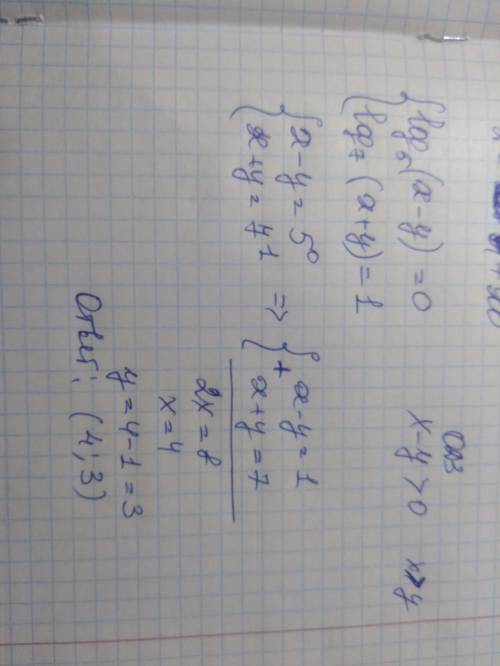 { log₅(x-y) = 0
{ log₇(x+y) = 1
ОДЗ
x-y>0 x>y
{ x-y = 5⁰
{ x+y = 7¹
=> { x-y=1
+ { x+y=7
2x=8
x=4
y=4-1=3
Ответ: (4;3)